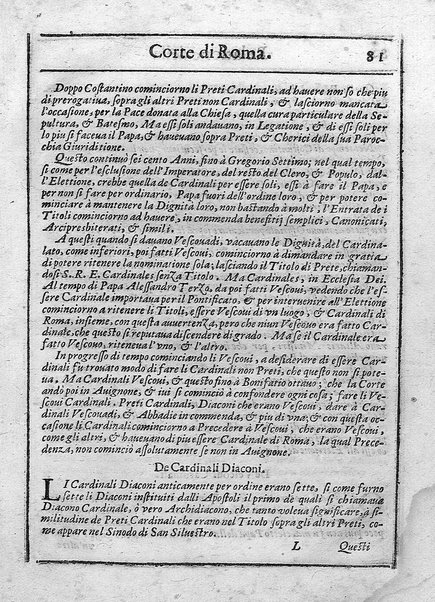 Corte di Roma. 81
Doppo Costantino cominciorno li Preti Cardinali, ad hauere non so che piu
di prerogatiua, sopra gli altri Preti non Cardinali, & lasciorno mancata
l'occasione, per la Pace donata alla Chiesa, quella cura particulare della Se-
pultura, & Batesmo, Ma essi soli andauano, in Legatione, & di essi soli per
lo piu si faceua il Papa, & haueuano sopra Preti, & Cherici della sua Paroc-
chia Giuriditione.
Questo continuò sei cento Anni, fino à Gregorio Settimo; nel qual tempo,
si come per l'esclusione dell'Imperatore, del resto del Clero, & Populo, dal-
l'Elettione, crebbe quella de Cardinali per essere soli, essi à fare il Papa, e
per non si fare per ordinario, Papa fuori dell'ordine loro, & per potere co-
minciare à mantenere la Dignità loro, non bastando à molti, l'Entrata de i
Titoli cominciorno ad hauere, in commenda benefitij semplici, Canonicati,
Arcipresbiterati, & simili.
A questi quando si dauano Vescouadi, vacauano le Dignità, del Cardina-
lato, come inferiori, poi fatti Vescoui, cominciorno à dimandare in gratia
di potere ritenere la nominatione sola; lasciando il Titolo di Prete, chiaman-
dosi S. R. E. Cardinales senza Titolo. Ma Cardinales, in Ecclesia Dei.
Al tempo di Papa Alessandro Terzo, da poi fatti Vescoui, vedendo che l'es-
sere Cardinale importaua per il Pontificato, & per interuenire all'Elettione
cominciorno a ritenere li Titoli, essere Vescoui di vn luogo, & Cardinali di
Roma, insieme, con questa auuertenza, pero che niun Vescouo era fatto Car-
dinale, che questo si reputaua discendere di grado. Ma se il Cardinale era
fatto Vescouo, riteneua l'vno, & l'altro.
In progresso di tempo cominciando li Vescoui, a desiderare di essere Car-
dinali fu trouato modo di fare li Cardinali non Preti, che questo non si pote-
ua, Ma Cardinali Vescoui, & questo fino à Bonifatio ottauo; che la Corte
andò poi in Auignone, & iui si cominciò à confondere ogni cosa; fare li Ve-
scoui Cardinali. Preti Cardinali, Diaconi che erano Vescoui, dare à Car-
dinali Vescouadi, & Abbadie in commenda, & piu di vna; & con questa oc-
casione li Cardinali comincioruo a Precedere à Vescoui, che erano Vescoui,
come gli altri, & haueuano di piu essere Cardinale di Roma, la qual Prece-
denza, non cominciò assolutamente se non in Auignone.
De Cardinali Diaconi.
LI Cardinali Diaconi anticamente per ordine erano sette, si come furno
sette li Diaconi instituiti dalli Apostoli il primo de quali si chiamaua
Diacono Cardinale, ò vero Archidiacono, che tanto voleua significare, à si-
militudine de Preti Cardinali che erano nel Titolo sopra gli altri Preti, co-
me appare nel Sinodo di San Siluestro.
L Questi